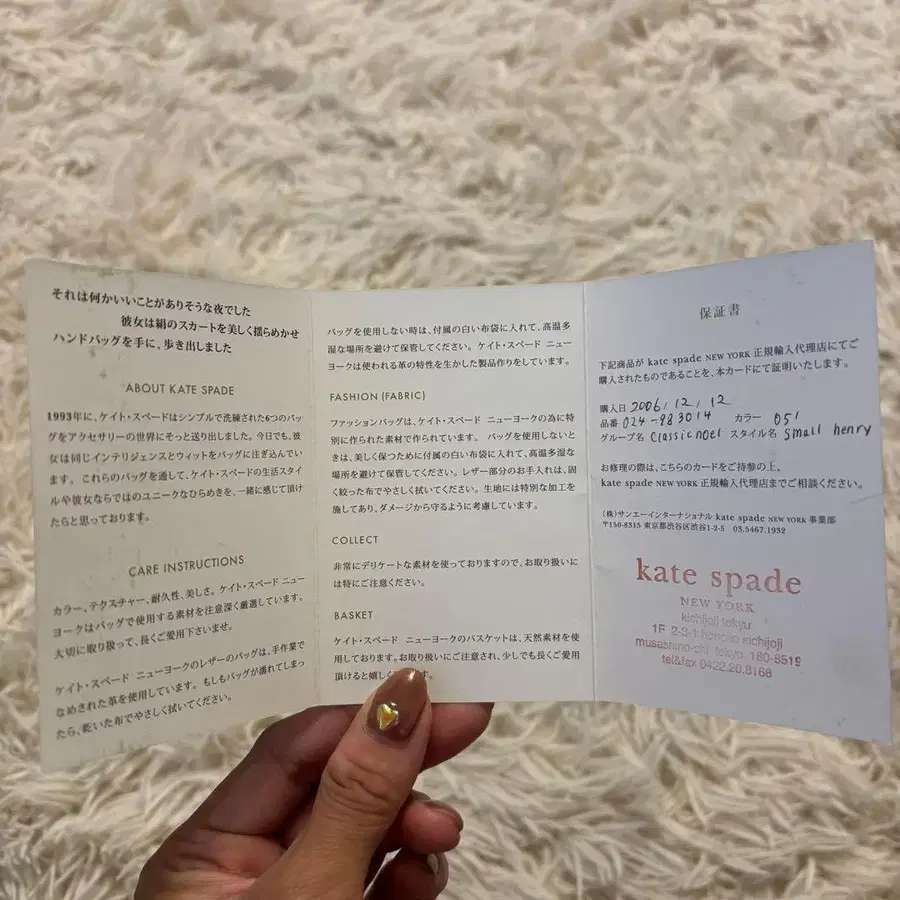 それは何かいいことがありそうな夜でした
彼女は絹のスカートを美しく揺らめかせ
ハンドバッグを手に、歩き出しました
ABOUT KATE SPADE
1993年に、ケイト・スペードはシンプルで洗練された6つのバッ
グをアクセサリーの世界にそっと送り出しました。今日でも、彼
女は同じインテリジェンスとウィットをバッグに注ぎ込んでい
ます。 これらのバッグを通して、ケイト・スペードの生活スタイ
ルや彼女ならではのユニークなひらめきを、一緒に感じて頂け
たらと思っております。
CARE INSTRUCTIONS
カラー、テクスチャー、耐久性、美しさ。ケイト・スペード ニュー
ヨークはバッグで使用する素材を注意深く厳選しています。
大切に取り扱って、長くご愛用下さいませ。
ケイト・スペード ニューヨークのレザーのバッグは、手作業で
なめされた革を使用しています。 もしもバッグが濡れてしまっ
たら、乾いた布でやさしく拭いてください。
バッグを使用しない時は、付属の白い布袋に入れて、高温多
湿な場所を避けて保管してください。 ケイト・スペード ニュー
ヨークは使われる革の特性を生かした製品作りをしています。
FASHION (FABRIC)
ファッションバッグは、ケイト・スペード ニューヨークの為に特
別に作られた素材で作られています。 バッグを使用しないと
きは、美しく保つために付属の白い布袋に入れて、高温多湿な
場所を避けて保管してください。レザー部分のお手入れは、固
く絞った布でやさしく拭いてください。 生地には特別な加工を
施してあり、ダメージから守るように考慮しています。
COLLECT
非常にデリケートな素材を使っておりますので、お取り扱いに
は特にご注意ください。
BASKET
ケイト・スペード ニューヨークのバスケットは、天然素材を使
用しております。お取り扱いにご注意され、少しでも長くご愛用
頂けると嬉しく
す。
保証書
下記商品が kate spade NEW YORK 正規輸入代理店にてご
購入されたものであることを、本カードにて証明いたします。
購入日 2006, 12, 12
品番 024-983014 カラー 051
グループ名 classic noel スタイル名 small henry
お修理の際は、こちらのカードをご持参の上、
kate spade NEW YORK 正規輸入代理店までご相談ください。
(株)サンエーインターナショナル kate spade NEW YORK 事業部
〒150-8315 東京都渋谷区渋谷1-2-5 03.5467.1932
kate spade
NEW YORK
kichijoji tokyu
1F 2-3-1 honcho kichijoji
musashino-shi tokyo 180-8519
tel&fex 0422.20.8168